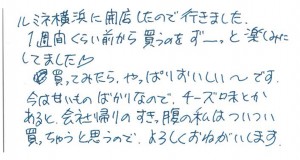 ルミネ横浜に開店したので行きました。
1週間くらい前から買うのをずーっと楽しみに
してました♡
買ってみたら、やっぱりおいしい〜です。
今は甘いものばかりなので、チーズ味とか
あると、会社帰りのすき腹の私はついつい
買っちゃうと思うので、よろしくおねがいします。